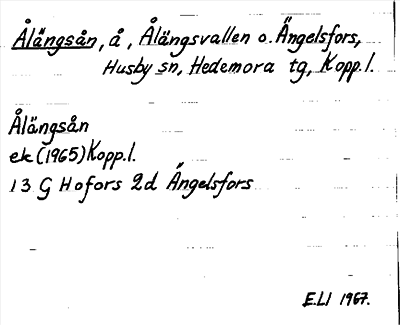 Ålängsån, å, Ålängsvallen o. Ängelsfors,
Husby sn, Hedemora tg, Kopp.l.
Ålängsån
ek (1965) Kopp.l.
13 G Hofors 2d Ängelsfors
E.LI 1967.